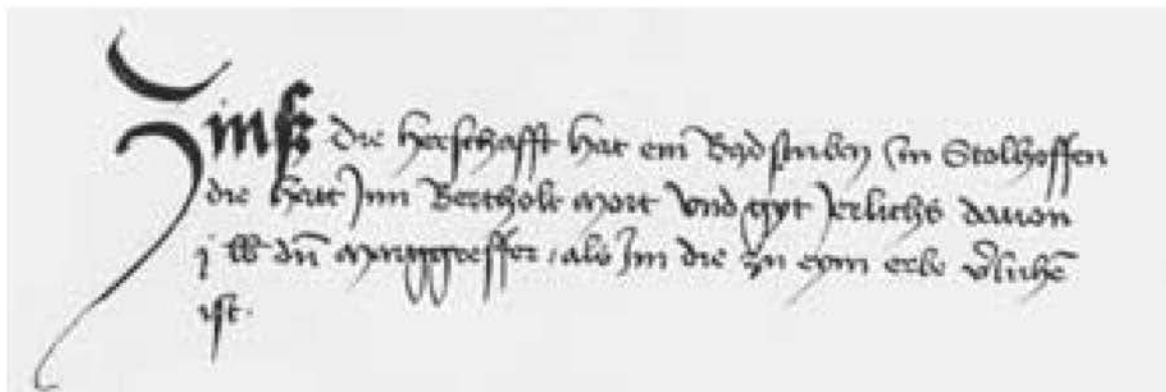 Zinß die herschafft hat ein Badstuben in Stolhoffen
die hatt Inn Bertholt Mort vnd gyt Jerlichs dauon
j lb dn̄ Marggreffer, als Im die zu eym erbe v̉lühē
ist.